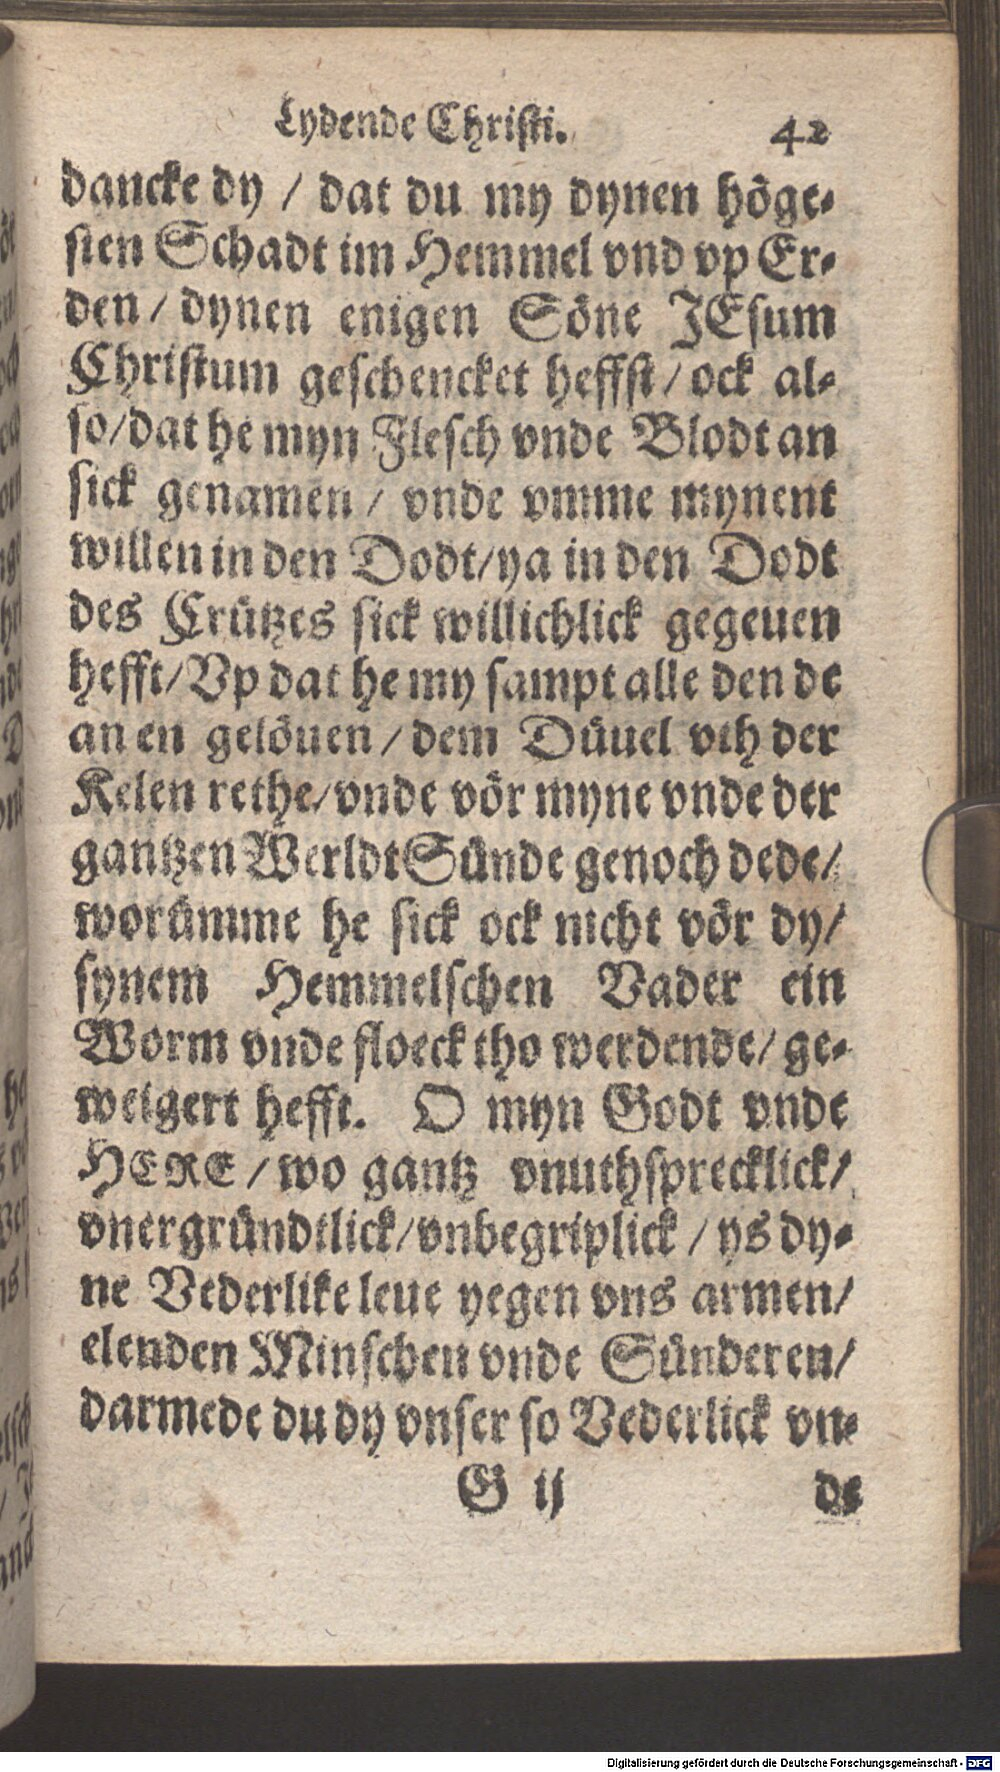 Lydende Christi. 42
dancke dy / dat du my dynen höge-
sten Schadt im Hemmel vnd vp Er-
den / dynen enigen Söne JEsum
Christum geschencket heffst / ock al-
so/dat he myn Flesch vnde Blodt an
sick genamen / vnde vmme mynent
willen in den Dodt/ya in den Dodt
des Crützes sick willichlick gegeuen
hefft/Vp dat he my sampt alle den de
an en gelöuen / dem Düuel vth der
Kelen rethe/vnde vör myne vnde der
gantzen Werldt Sünde genoch dede/
worümme he sick ock nicht vör dy/
synem Hemmelschen Vader ein
Worm vnde floeck tho werdende/ ge-
weigert hefft. O myn Godt vnde
HERE / wo gantz vnuthsprecklick/
vnergründtlick/vnbegriplick / ys dy-
ne Vederlike leue yegen vns armen/
elenden Minschen vnde Sünderen/
darmede du dy vnser so Vederlick vn-
G ij de
Digitalisierung gefördert durch die Deutsche Forschungsgemeinschaft - DFG